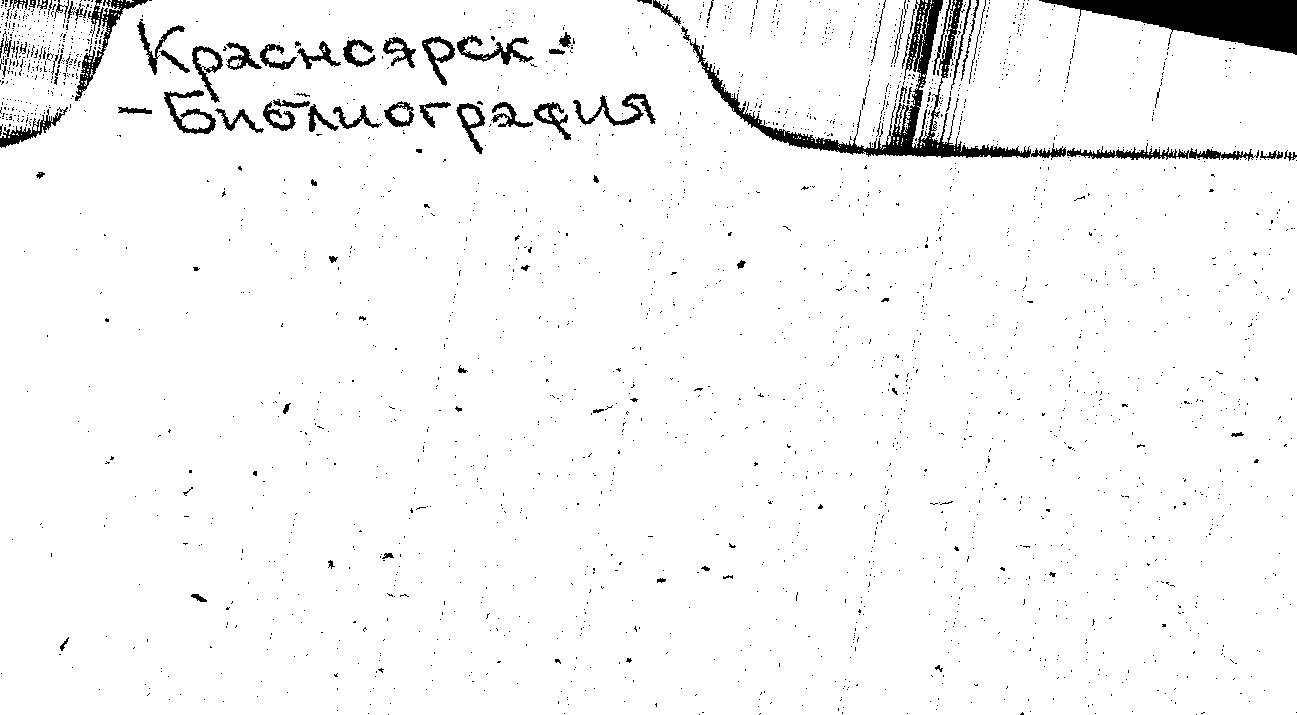 Красноярск -
- Библиография